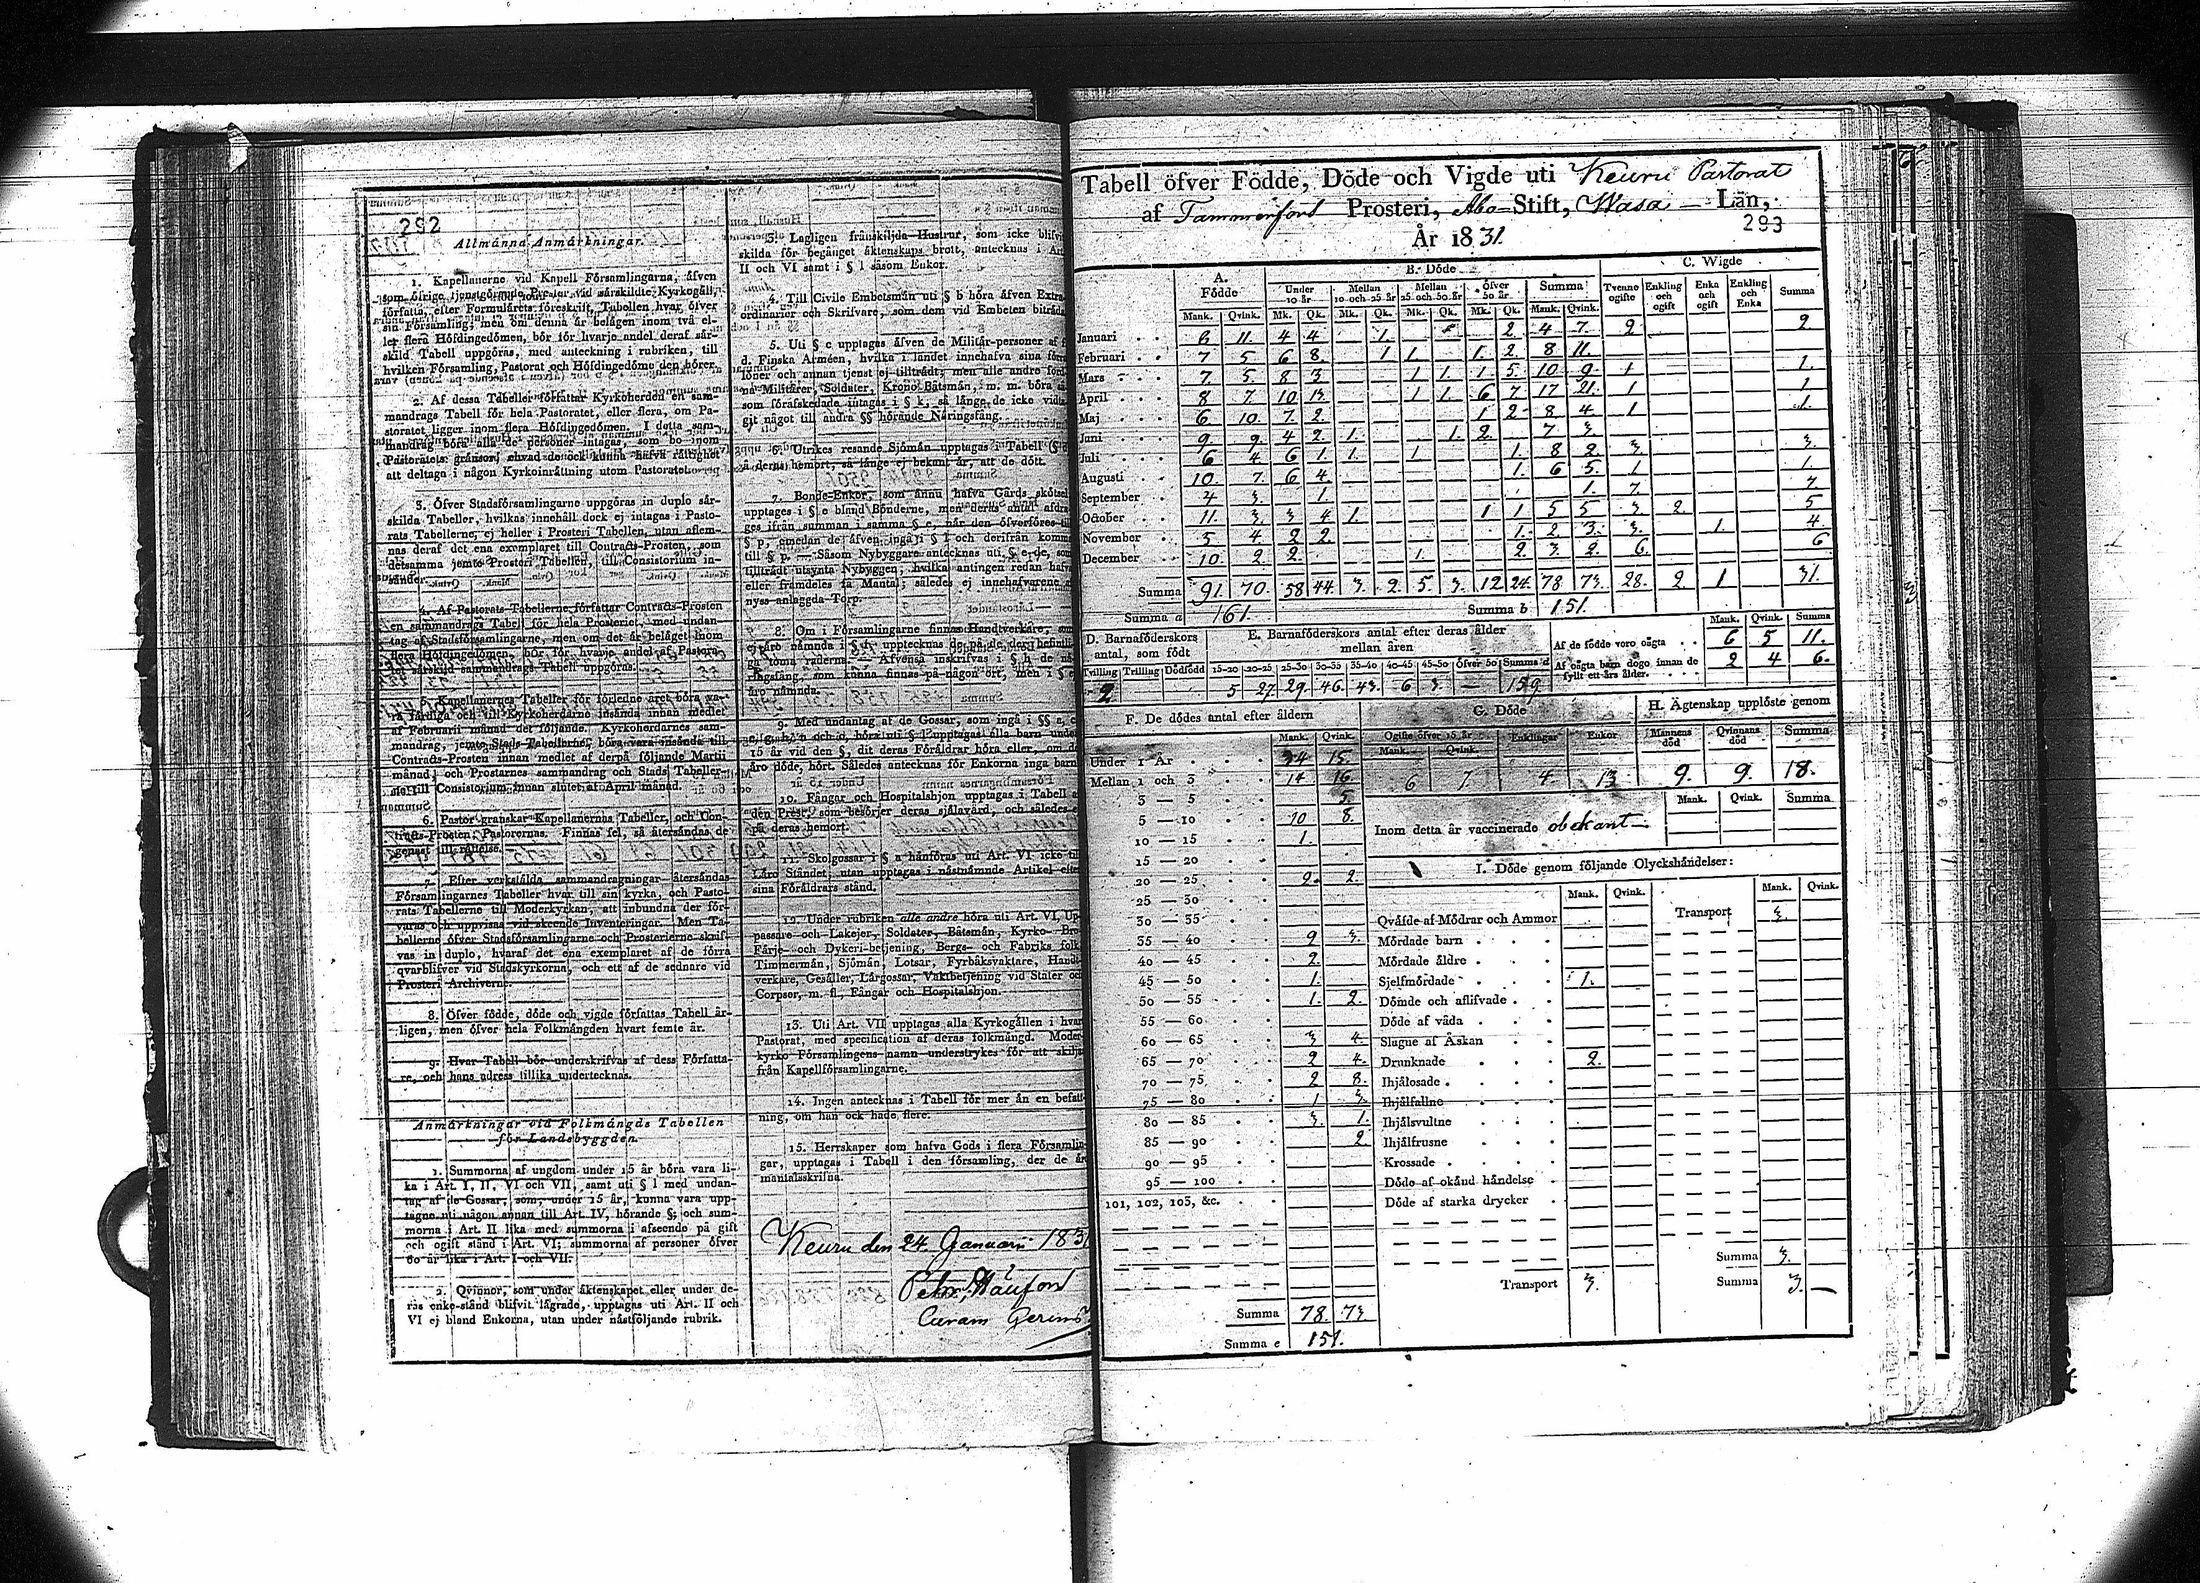 292
Allmänna Anmärkningar.
1. Kapellanerne vid Kapell Församlingarna, åfven
som öfrige tjenstgörande Prester vid särskildte Kyrkogåll,
författa, efter Formulårets föreskrift, Tabellen hvar öfver
sin Församling; men om denna år belågen inom två el-
ler flera Höfdingedömen, bör för hvarje andel deraf sår-
skild Tabell uppgöras, med anteckning i rubriken, till
hvilken Församling, Pastorat och Höfdingedöme den hörer.
2. Af dessa Tabeller författar Kyrkoherden en sam-
mandrags Tabell för hela Pastoratet, eller flera, om Pa-
storatet ligger inom flera Höfdingedömen. I detta sam-
mandrag böra alla de personer intagas, som bo inom
Pastoratets gränsor, ehvad de ock kunna hafva råttighet
att deltaga i någon Kyrkoinråttning utom Pastoratet.
3. Öfver Stadsförsamlingarne uppgöras in duplo sår-
skilda Tabeller, hvilkas innehåll dock ej intagas i Pasto-
rats Tabellerne, ej heller i Prosteri Tabellen, utan aflem-
nas deraf det ena exemplaret till Contracts-Prosten, som
detsamma jemte Prosteri Tabellen, till Consistorium in-
sånder.
4. Af Pastorats-Tabellerne författar Contracts-Prosten
en sammandrags Tabell för hela Prosteriet, med undan-
tag af Stadsförsamlingarne, men om det år belåget inom
flera Höfdingedömen, bör för hvarje andel af Pastora-
tet sårskild sammandrags Tabell uppgöras.
5. Kapellanernes Tabeller för förledne året böra va-
ra fårdiga och till Kyrkoherdarne insånda innan medlet
af Februarii månad det följande. Kyrkoherdarnes sam-
mandrag, jemte Stads Tabellerne, böra vara insånde till
Contracts-Prosten innan medlet af derpå följande Martii
månad; och Prostarnes sammandrag och Stads Tabeller-
ne till Consistorium innan slutet af April månad.
6. Pastor granskar Kapellanernas Tabeller, och Con-
tracts-Prosten, Pastorernas. Finnas fel, så återsåndas de
genast till råttelse.
7. Efter verkstålda sammandragningar återsåndas
Församlingarnes Tabeller hvar till sin kyrka, och Pasto-
rats Tabellerne till Moderkyrkan, att inbundna der för-
varas och uppvisas vid skeende Inventeringar. Men Ta-
bellerne öfver Stadsförsamlingarne och Prosterierne skrif-
vas in duplo, hvaraf det ena exemplaret af de förra
qvarblifver vid Stadskyrkorna, och ett af de sednare vid
Prosteri Archiverne.
8. Öfver födde, döde och vigde författas Tabell år-
ligen, men öfver hela Folkmångden hvart femte år.
9. Hvar Tabell bör underskrifvas af dess Författa-
re, och hans adress tillika undertecknas.
Anmärkningar vid Folkmångds Tabellen
för Landsbyggden.
1. Summorna af ungdom under 15 år böra vara li-
ka i Art. I, II, VI och VII, samt uti § l med undan-
tag af de Gossar, som, under 15 år, kunna vara upp-
tagne uti någon annan till Art. IV, hörande §; och sum-
morna i Art. II lika med summorna i afseende på gift
och ogift stånd i Art. VI; summorna af personer öfver
60 år lika i Art. I och VII.
2. Qvinnor, som under åktenskapet eller under de-
ras enke-stånd blifvit lågrade, upptagas uti Art. II och
VI ej bland Enkorna, utan under nåstföljande rubrik.
3. Lagligen frånskiljda Hustrur, som icke blifvit
skilda för begånget åktenskaps brott, antecknas i Art.
II och VI samt i § l såsom Enkor.
4. Till Civile Embetsmån uti § b höra åfven Extra-
ordinarier och Skrifvare, som dem vid Embeten bitråda.
5. Uti § c upptagas åfven de Militår-personer af f.
d. Finska Arméen, hvilka i landet innehafva sina förra
löner och annan tjenst ej tilltrådt; men alla andre förd-
na Militårer, Soldater, Krono Båtsmån, m. m. böra så-
som förafskedade intagas i § k, så långe de icke vidta-
git något till andra §§ hörande Nåringsfång.
6. Utrikes resande Sjömån upptagas i Tabell
å deras hemort, så långe ej bekant år, att de dött.
7. Bonde-Enkor, som ånnu hafva Gårds skötsel
upptages i § e bland Bönderne, men deras antal afdra-
ges ifrån summan i samma § e, når den öfverföres till
§ p, emedan de åfven ingå i § l och derifrån komma
till § p. — Såsom Nybyggare antecknas uti § e de, som
tilltrådt utsynta Nybyggen, hvilka antingen redan hafva
eller framdeles få Mantal; således ej innehafvarene af
nyss anlaggda Torp.
8. Om i Församlingarne finnas Handtverkare, som
ej åro nåmnda i § g, upptecknas de på de der befintli-
ga toma raderna. Åfvenså inskrifvas i § h de nå-
ringsfång, som kunna finnas på någon ort, men i §
åro nåmnda.
9. Med undantag af de Gossar, som ingå i §§ a, c,
e, g, h, n och o, böra uti § l upptagas alla barn under
15 år vid den §, dit deras Föråldrar höra eller, om de
åro döde, hört. Således antecknas för Enkorna inga barn.
10. Fångar och Hospitalshjon upptagas i Tabell af
den Prest, som besörjer deras sjålavård, och således ej
på deras hemort.
11. Skolgossar i § a hånföras uti Art. VI icke till
Låro Ståndet, utan upptagas i nåstnåmnde Artikel efter
sina Föråldrars stånd.
12. Under rubriken alle andre höra uti Art. VI, Up-
passare och Lakejer, Soldater, Båtsmån, Kyrko- Bro-
Fårje- och Dykeri-betjening, Bergs- och Fabriks folk,
Timmermån, Sjömån, Lotsar, Fyrbåksvaktare, Handt-
verkare, Gesåller, Lårgossar, Vaktbetjening vid Stater och
Corpser, m. fl., Fångar och Hospitalshjon.
13. Uti Art. VII upptagas alla Kyrkogållen i hvart
Pastorat, med specification af deras folkmångd. Moder-
kyrko Församlingens namn understrykes för att skilja
från Kapellförsamlingarne.
14. Ingen antecknas i Tabell för mer ån en befatt-
ning, om han ock hade flere.
15. Herrskaper som hafva Gods i flera Församlin-
gar, upptagas i Tabell i den församling, der de åro
mantalsskrifna.
Keuru den 24 Januarii 183
Curam Gerens
Tabell öfver Födde, Döde och Vigde uti Keuru Pastorat
af Tammerfors Prosteri, Abo-Stift, Wasa — Län,
293
År 1831.
A. Födde B. Döde C. Wigde
Under 10 år Mellan 10 och 25 år Mellan 25 och 50 år Öfver 50 år Summa Tvenne ogifte Enkling och ogift Enka och ogift Enkling och Enka Summa
Mank. Qvink. Mk. Qk. Mk. Qk. Mk. Qk. Mk. Qk. Mank. Qvink.
Januari 8 11. 4 4 1. 2 4 7. 2 2
Februari 7 5 6 8. 1 1. 1. 2. 8 11.
Mars 7. 5. 8 3 1 1. 1 5 10 9. 1 1.
April 8 7. 10 13. 1 1. 6 7. 17 21. 1 1
Maj 6 10. 7 2. 1 2 8 4 1 1.
Juni 9. 9. 4 2. 1. 1. 2. 7 3.
Juli 6 4 6 1. 1. 1 1. 8 2. 3. 3.
Augusti 10. 7. 6 4 1. 6 5. 1 1.
September 4 3. 1. 1. 7. 7
October 11. 3. 3 4 1. 1 1 5 5 3. 2. 5
November 5 4 2 2 1. 2 3. 3. 1. 4.
December 10. 2 2. 1. 2 3. 2. 6. 6
Summa 91. 70. 58 44. 3. 2. 5 3. 12 24. 78 73. 28. 2 1 31.
Summa a 161. Summa b 151.
D. Barnaföderskors antal, som födt
Tvilling Trilling Dödfödt
2
E. Barnaföderskors antal efter deras ålder mellan åren
15-20 20-25 25-30 30-35 35-40 40-45 45-50 öfver 50 Summa d
5 27. 29. 46. 43. 6 3. — 159.
Mank. Qvink. Summa
Af de födde voro oägta 6 5 11.
Af oägta barn dogo innan de fyllt ett års ålder. 2 4 6.
F. De dödes antal efter åldern
Mank. Qvink.
Under 1 År 34 15.
Mellan 1 och 3 14 16
3 — 5 5
5 — 10 10 8.
10 — 15 1.
15 — 20
20 — 25 2. 2.
25 — 30
30 — 35
35 — 40 2 3.
40 — 45 2.
45 — 50 1.
50 — 55 1. 2.
55 — 60
60 — 65 3 4.
65 — 70 2 4.
70 — 75 2 8.
75 — 80 1 3.
80 — 85 3. 1.
85 — 90 2.
90 — 95
95 — 100
101, 102, 103, &c.
Summa 78. 73.
Summa e 151.
G. Döde
Ogifte öfver 15 år Enklingar Enkor
Mank. Qvink.
6 7 4 13
H. Ägtenskap upplöste genom
Mannens död Qvinnans död Summa
9. 9. 18.
Mank. Qvink. Summa
Inom detta år vaccinerade obekant
I. Döde genom följande Olyckshändelser:
Mank. Qvink. Mank. Qvink.
Qväfde af Mödrar och Ammor Transport 3.
Mördade barn
Mördade äldre
Sjelfmördade 1.
Dömde och aflifvade
Döde af våda
Slagne af Åskan
Drunknade 2.
Ihjälosade
Ihjälfallne
Ihjälsvultne
Ihjälfrusne
Krossade
Döde af okänd händelse
Döde af starka drycker
Summa 3.
Transport 3. Summa 3. —